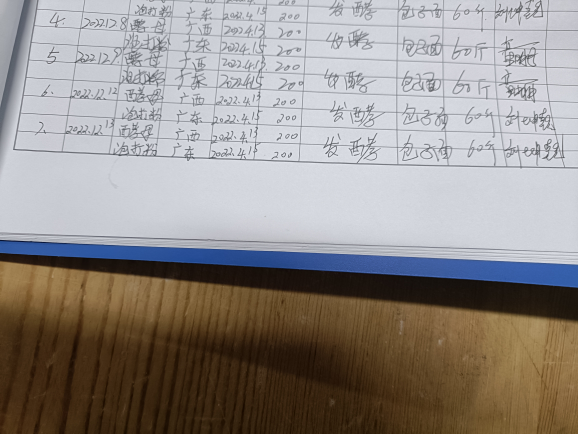 泡打粉 广东 2022.4.15 200 发酵 包子面 60斤
4. 2022.12.8 酵母 广西 2022.4.13 200
泡打粉 广东 2022.4.15 200 发酵 包子面 60斤
5 2022.12.9 酵母 广西 2022.4.13 200
泡打粉 广东 2022.4.15 200 发酵 包子面 60斤
6. 2022.12.12 酵母 广西 2022.4.13 200
泡打粉 广东 2022.4.15 200 发酵 包子面 60斤
7. 2022.12.13 酵母 广西 2022.4.13 200
泡打粉 广东 2022.4.15 200 发酵 包子面 60斤